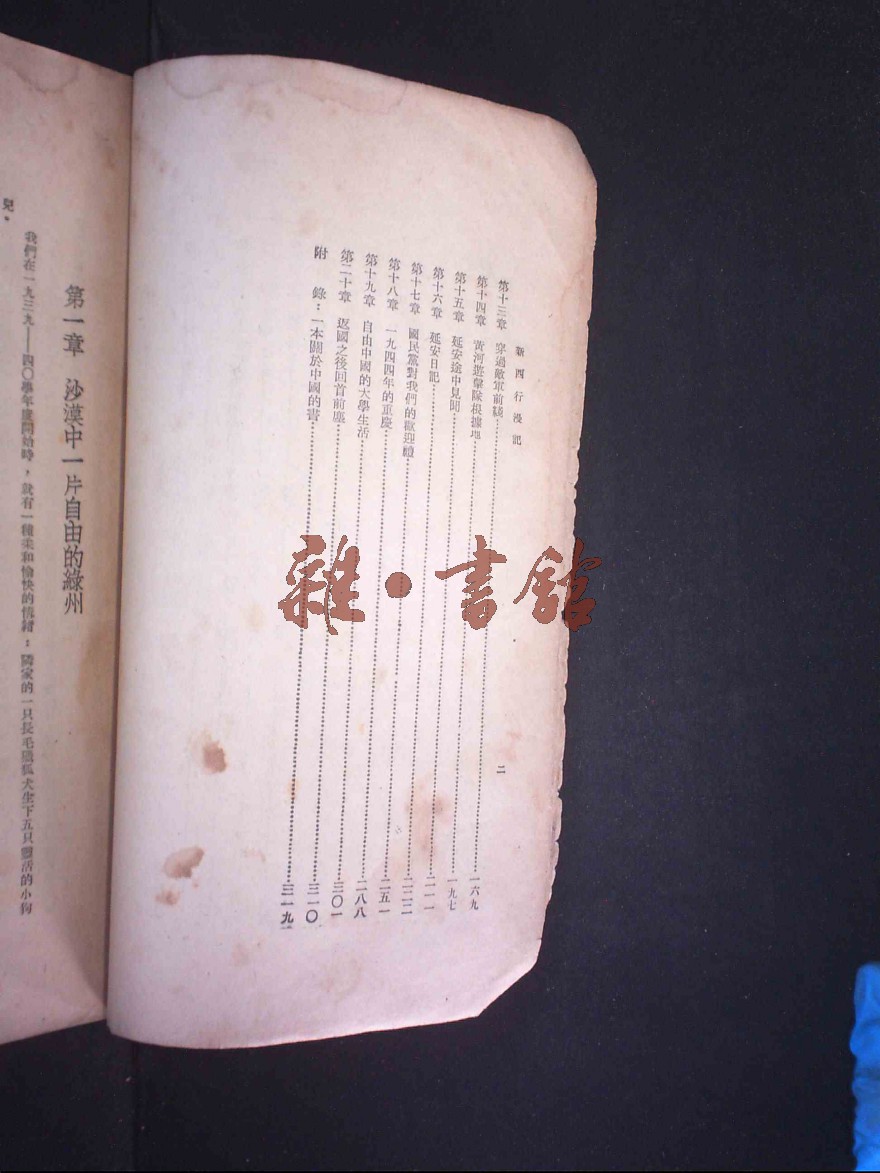 新西行漫記
二
第十三章 穿過敵軍前綫……一六九
第十四章 黃河遊擊隊根據地……一九七
第十五章 延安途中見聞……二一一
第十六章 延安日記……二二二
第十七章 國民黨對我們的歡迎禮……二五一
第十八章 一九四四年的重慶……二八八
第十九章 自由中國的大學生活……三〇一
第二十章 返國之後回首前塵……三一〇
附 錄：一本關於中國的書……三一九
第一章 沙漠中一片自由的綠州
我們在一九三九——四〇學年度開始時，就有一種柔和愉快的情緒：隣家的一只長毛狐犬生下五只靈活的小狗
兒。
雜·書館